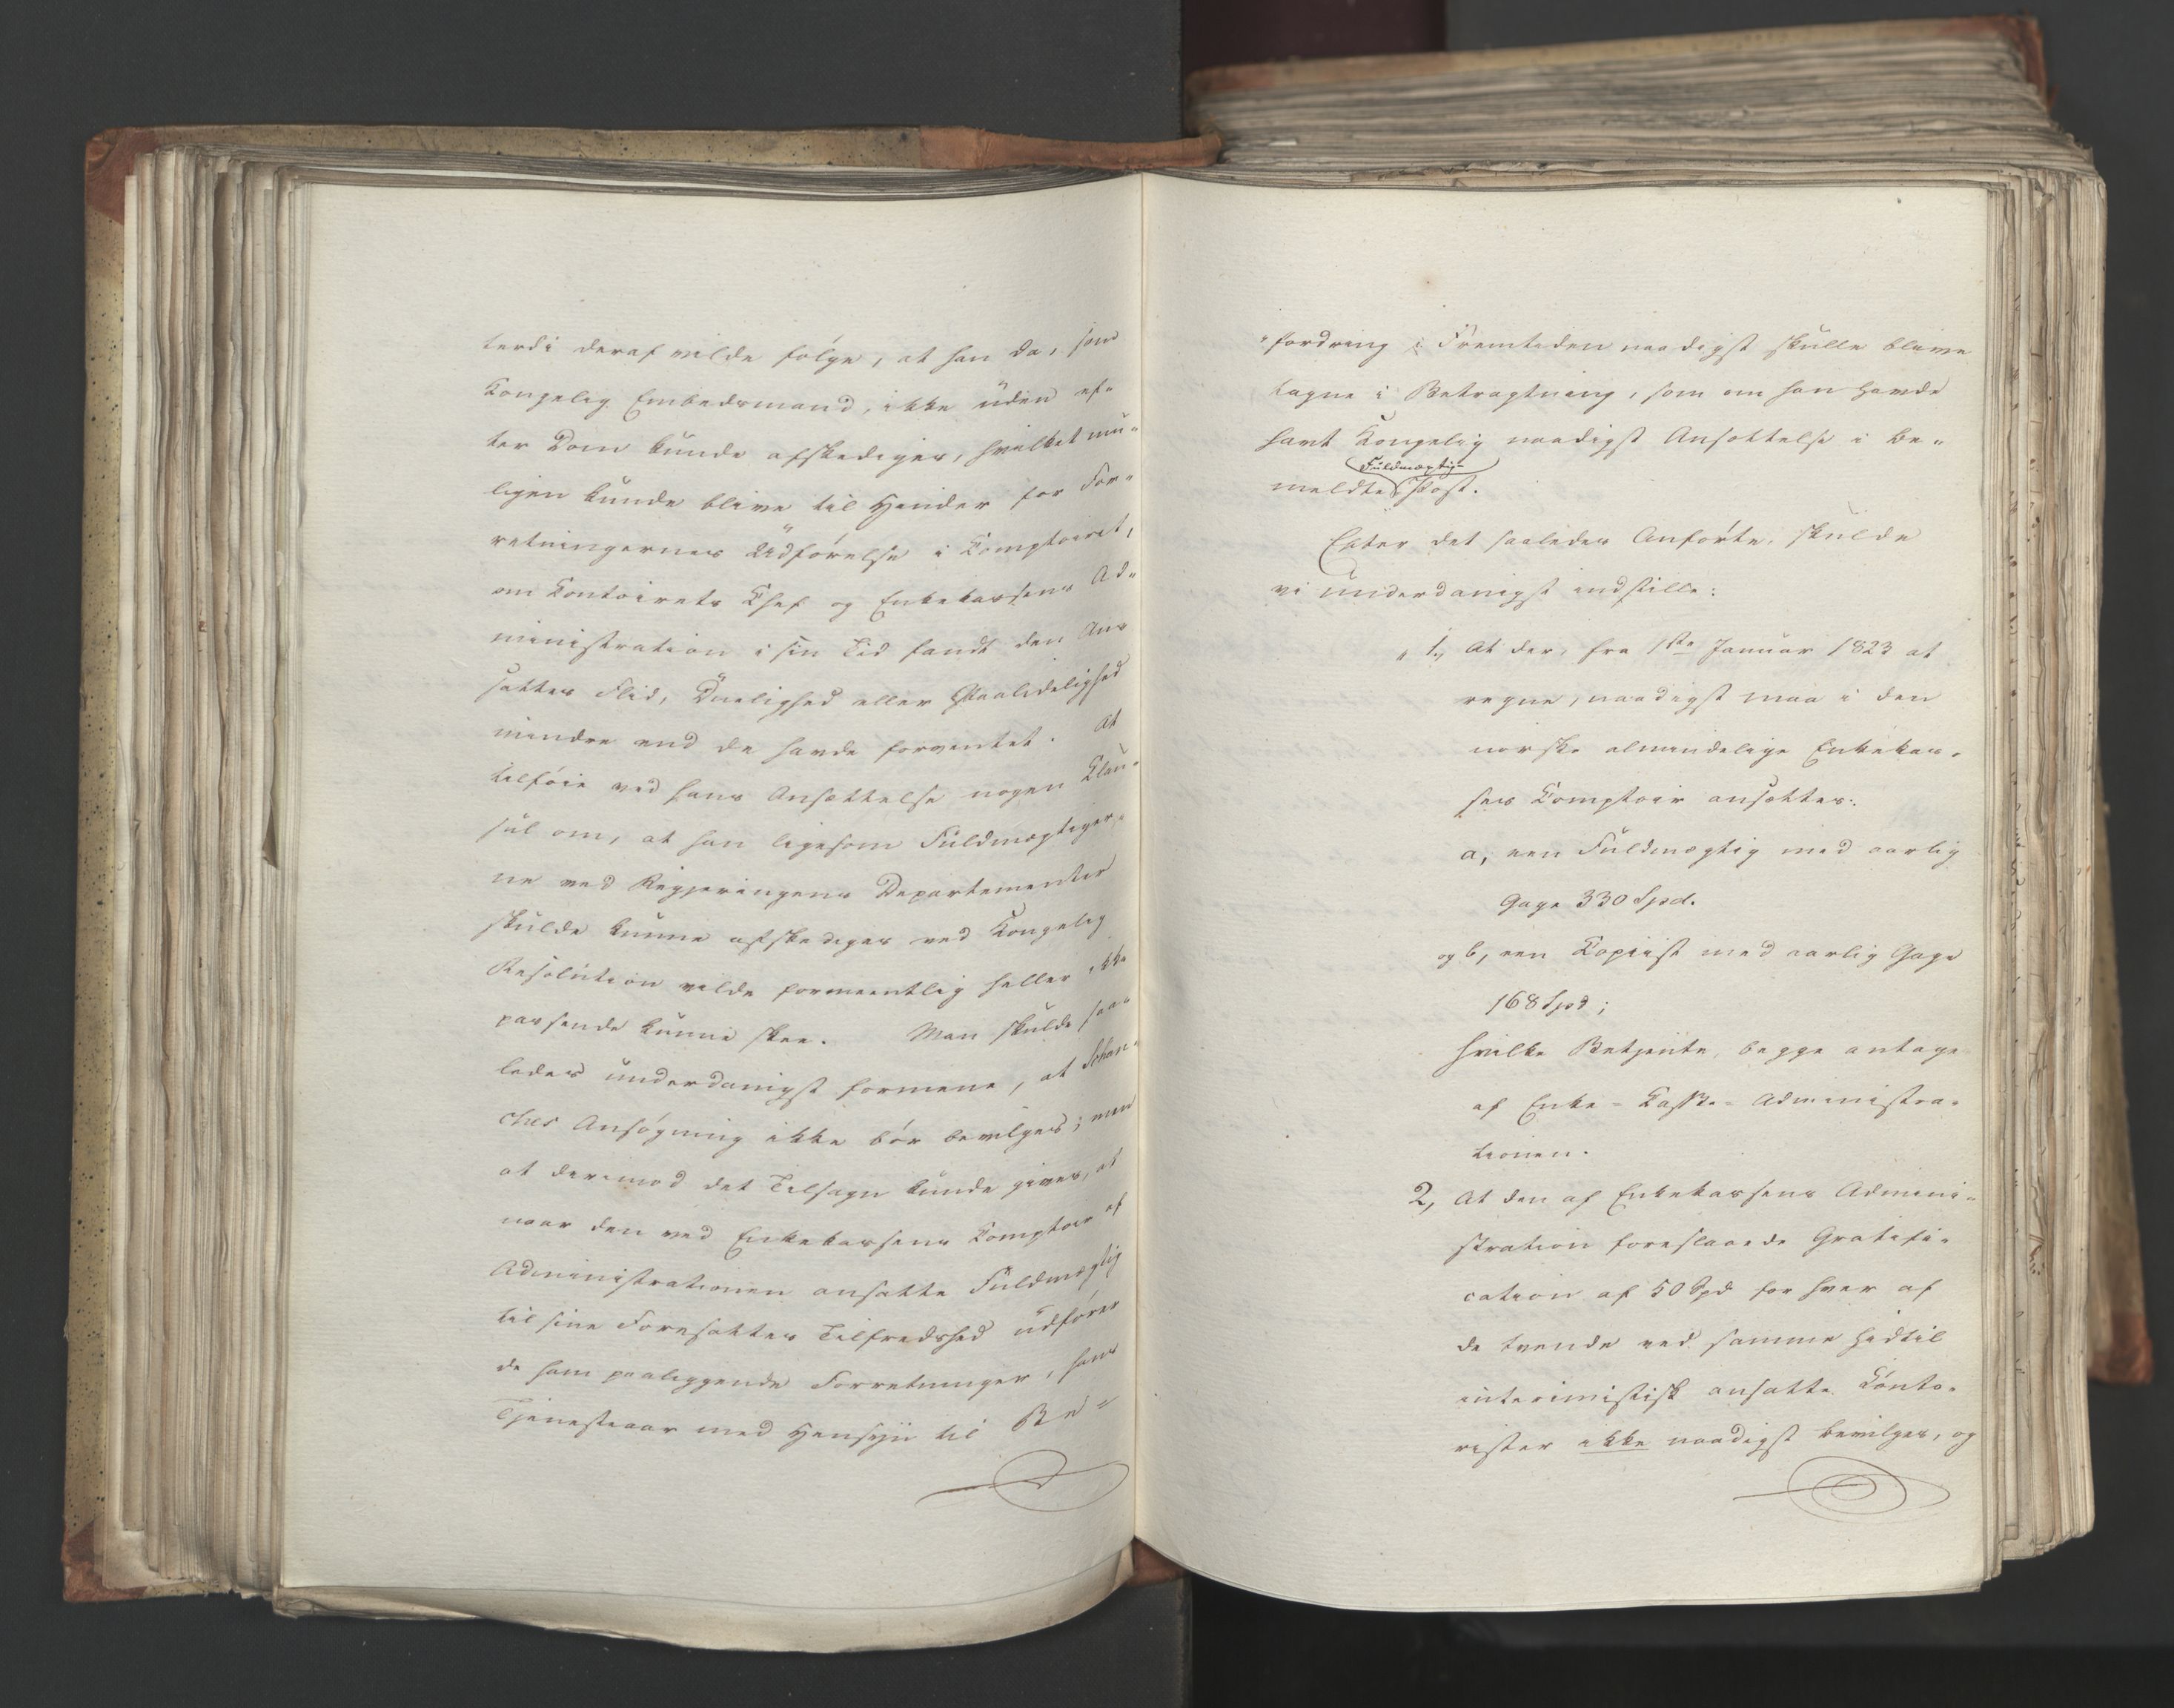 terdi deraf vilde følge, at han da, som
Kongelig Embedsmand, ikke uden ef-
ter Dom kunde afskediges, hvilket mu-
ligen kunde blive til Hinder for For-
retningernes Udførelse i Comptoiret,
om Contoirets Chef og Enkekassens Ad-
ministration i sin Tid fandt den An-
sattes Flid, Duelighed eller Paalidelighed
mindre end de havde forventet. At
tilføie ved hans Ansættelse nogen Klau-
sul om, at han ligesom Fuldmægtiger-
ne ved Regjeringens Departementer
skulde kunne afskediges ved Kongelig
Resolution vilde formeentlig heller ikke
passende kunne skee. Man skulde saa-
ledes underdanigst formene, at Schan-
ches Ansøgning ikke bør bevilges; men
at derimod det Tilsagn kunde gives, at
naar den ved Enkekassens Comptoir af
Administrationen ansatte Fuldmægtig
til sine Foresattes Tilfredshed udfører
de ham paaliggende Forretninger, hans
Tjenesteaar med Hensyn til Be-
"fordring i Fremtiden naadigst skulle blive
tagne i Betragtning, som om han havde
havt Kongelig naadigst Ansættelse i be-
Fuldmægtig-
meldte Post.
Efter det saaledes Anførte, skulde
vi underdanigst indstille:
" 1, At der, fra 1ste Januar 1823 at
regne, naadigst maa i den
norske almindelige Enkekas-
ses Comptoir ansættes:
a, een Fuldmægtig med aarlig
Gage 330 Spd.
og b, een Copiist med aarlig Gage
168 Spd;
hvilke Betjente begge antages
af Enke-Kasse-Administra-
tionen.
2, At den af Enkekassens Admini-
stration foreslaaede Gratifi-
cation af 50 Spd for hver af
de tvende ved samme hidtil
interimistisk ansatte Conto-
rister ikke naadigst bevilges, og